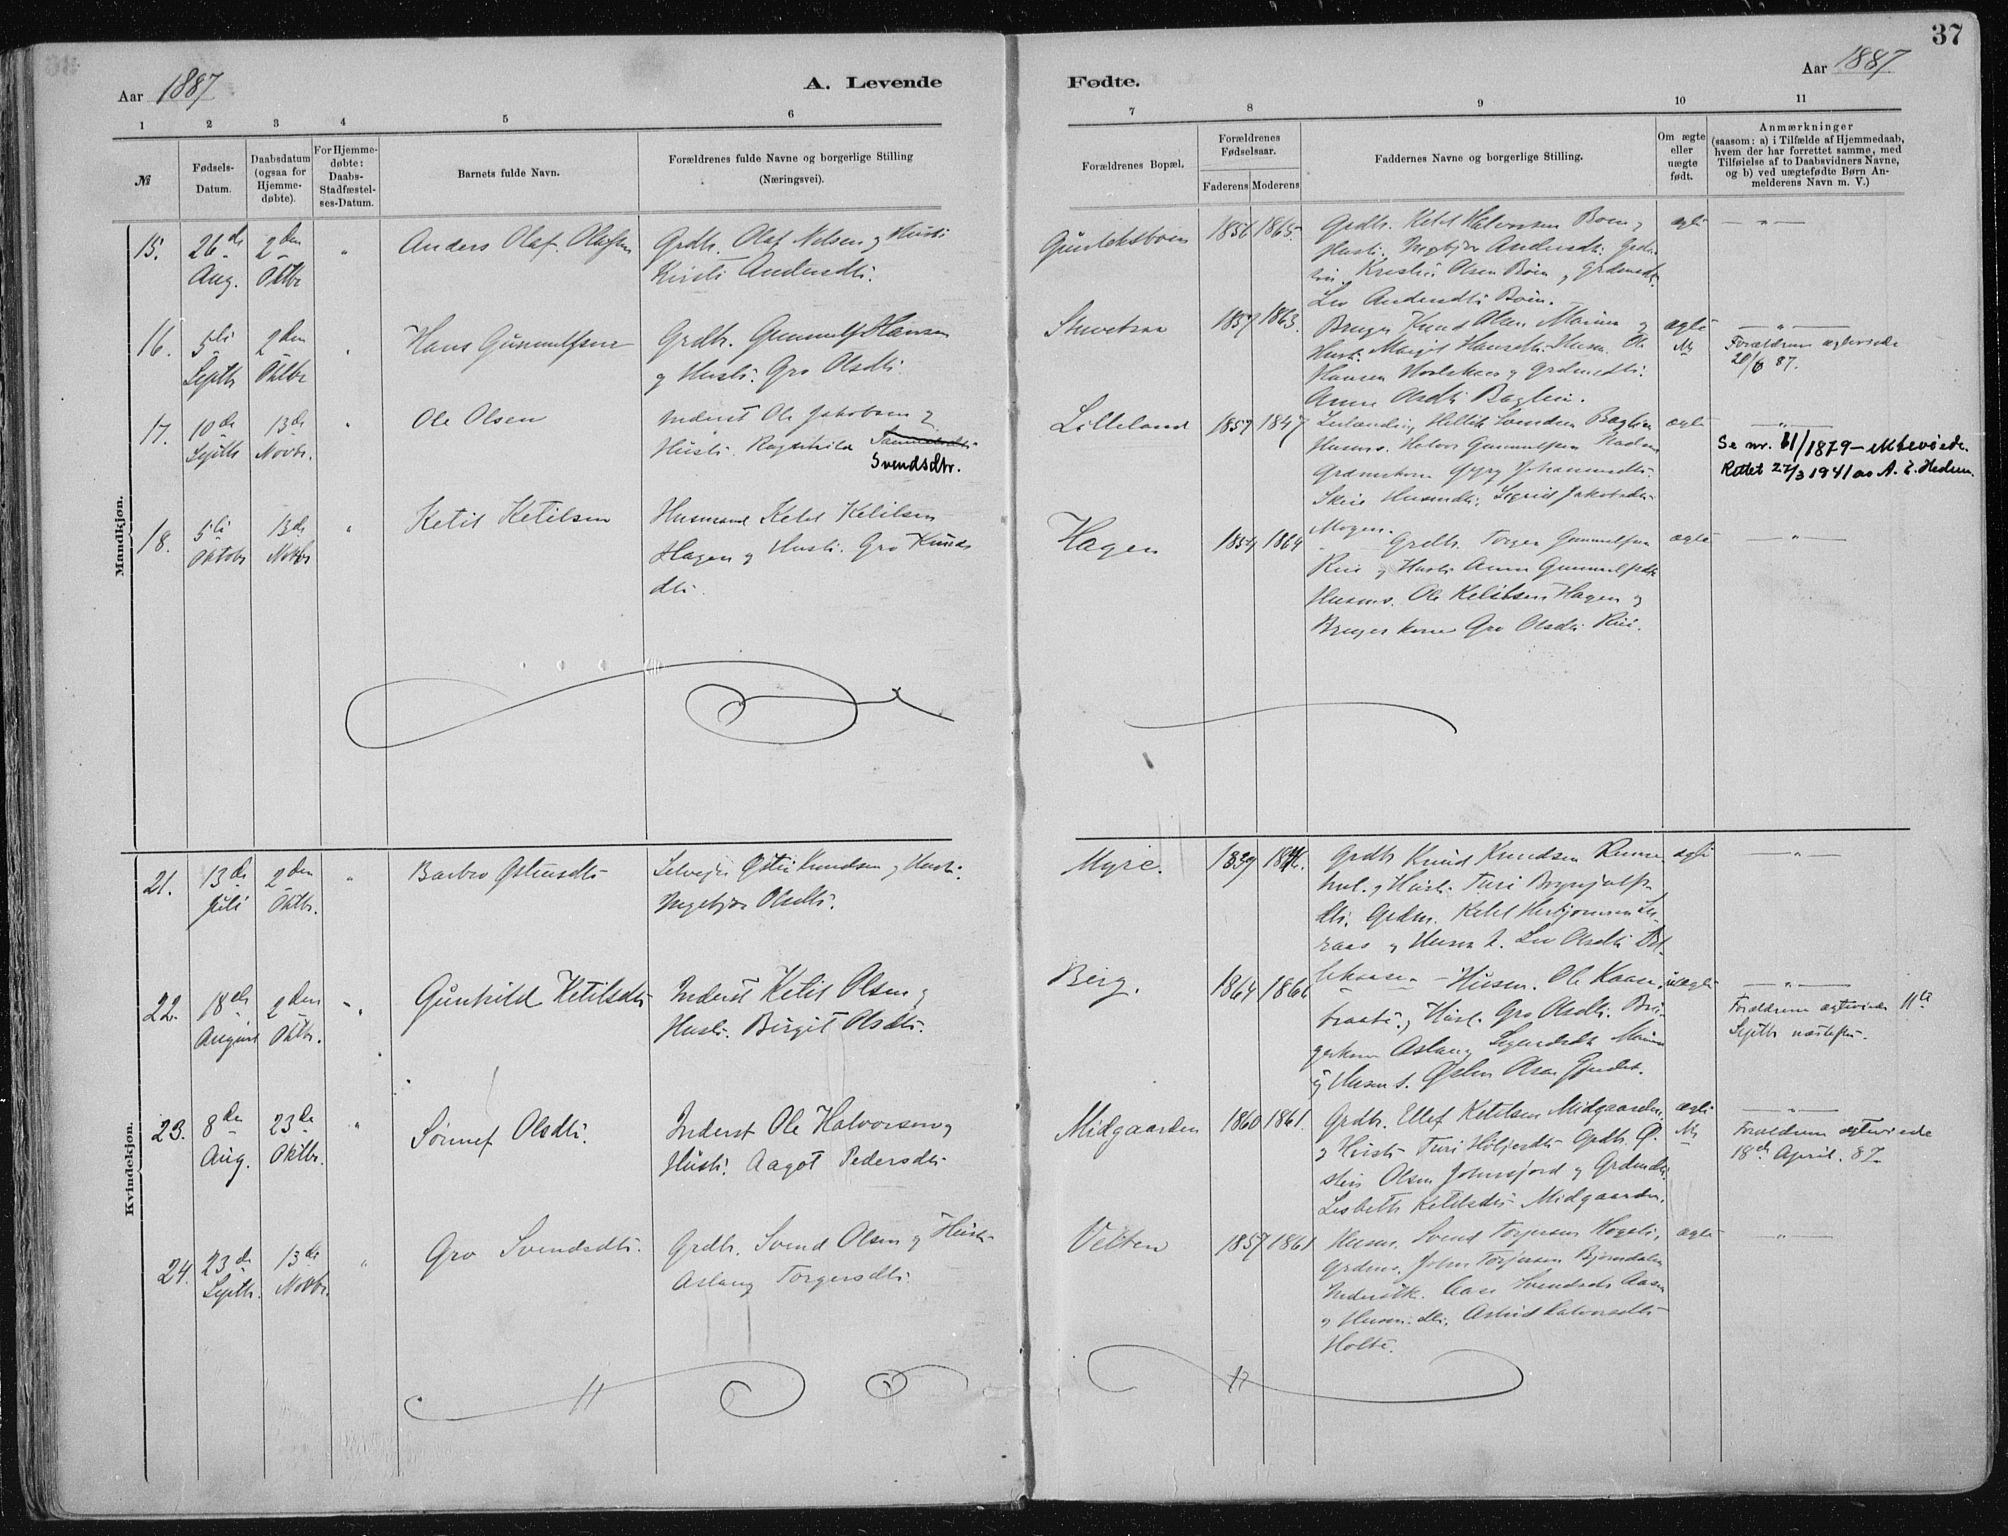 37
Aar 1887
A. Levende
Fødte.
Aar 1887
1 2 3 4 5 6 7 8 9 10 11
№
Fødsels-
Datum.
Daabsdatum
(ogsaa for
Hjemme-
døbte).
For Hjemme-
døbte:
Daabs-
Stadfæstel-
ses-Datum.
Barnets fulde Navn.
Forældrenes fulde Navne og borgerlige Stilling
(Næringsvei).
Forældrenes Bopæl.
Forældrenes
Fødselsaar.
Faderens Moderens
Faddernes Navne og borgerlige Stilling.
Om ægte
eller
uægte
født.
Anmærkninger
(saasom: a) i Tilfælde af Hjemmedaab,
hvem der har forrettet samme, med
Tilføielse af to Daabsvidners Navne,
og b) ved uægtefødte Børn An-
melderens Navn m. V.)
Mandkjøn.
15.
26de
Aug.
2den
Oktbr
"
Anders Olaf Olafsen
Grdbr. Olaf Nelsen og Hustr.
Kirsti Andersdtr.
Gunleksboen
1856 1865.
Grdbr. Ketil Halvorsen Boen og
Hustr. Ingebjør Andersdtr.
Kristen Olsen Böen og Grdmdtr.
Liv Andersdtr Boen.
ægte
—"—
16.
5te
Septbr
2den
Oktbr
"
Hans Gunnulfsen
Grdbr. Gunnulf Hansen
og Hustr. Gro Olsdtr.
1857 1863.
Bruger Knud Olsen Marum og
Hustr. Margit Hansdtr. Husm. Ole
Hansen og Grdmdtr.
Anne Olsdtr Baglien.
ægte
N
—"—
Forældrene ægteviede
20/6 87.
17.
10de
Septbr
13de
Novbr.
"
Ole Olsen
Inderst Ole Jakobsen og
Hustr. Ragnhild
Svendsdtr.
Lilleland
1857 1847
Svendsen Baglien
Husms. Halvor Gunnulfsen
Grdmskone Gyrg Johannesdtr.
Skeie Husmdtr. Sigrid Jakobsdtr
Mogen.
ægte
—"—
Se nr. 61/1879 – ektevied.
Rettet 27/3 1941 av A. E. Hedem.
18.
5te
Oktobr
13de
Novbr
"
Ketil Ketilsen
Husmand Ketil Ketilsen
Hagen og Hustr. Gro Knuds
dtr.
Hagen
1854 1864
Grdbr. Torger Gunnulfsen
Rui og Hustr Anne Gunnulfsdtr
Husms. Ole Ketilsen Hagen og
Brugerkone Gro Olsdtr Rui.
ægte
—"—
Kvindekjøn.
21.
13de
Juli
2den
Oktbr.
"
Barbro Østensdtr
Selveier Østen Knudsen og Hustr.
Ingebjør Olsdtr.
Myre.
1839 1846.
Grdbr Knud Knudsen
og Hustr. Turi Brynjulfs-
dtr. Grdm. Ketil Herbjornsen
raas og Husm d. Liv Olsdtr
ægte
—"—
22.
18de
August
2den
Oktbr.
"
Gunhild Ketilsdtr
Inderst Ketil Olsen og
Hustr. Birgit Olsdtr.
Berg.
1864 1866
Husm. Ole
og Hustr. Gro Olsdtr. Bru-
gerkone Aslaug Sigurdsdtr
og Husm s. Østen Olsen
uægte
—"—
Forældrene ægteviede 11te
Septbr næstefter.
23.
8de
Aug.
23de
Oktbr.
"
Sönnef Olsdtr.
Inderst Ole Halvorsen og
Hustr. Aagot Pedersdtr
Midgaarden
1860 1861.
Grdbr. Ellef Ketilsen Midgaarden
og Hustr Turi Höljesdtr Grdbr. Ø-
stein Olsen Johnssjord og Grdmdtr.
Lisbeth Ketilsdtr Midgaarden.
ægte
N
—"—
Forældrene ægteviede
18de April. 87.
24.
23de
Septbr.
13de
Novbr.
"
Gro Svendsdtr.
Grdbr. Svend Olsen og Hustr.
Aslaug Torgersdtr.
Velten
1857 1861
Husm. Svend Torjusen Hogeli,
Grdms. John Torjusen Bjørndalen
Aase Svendsdtr Aasen
og Husm. dtr. Astrid Halvorsdtr
Holte.
ægte
—"—